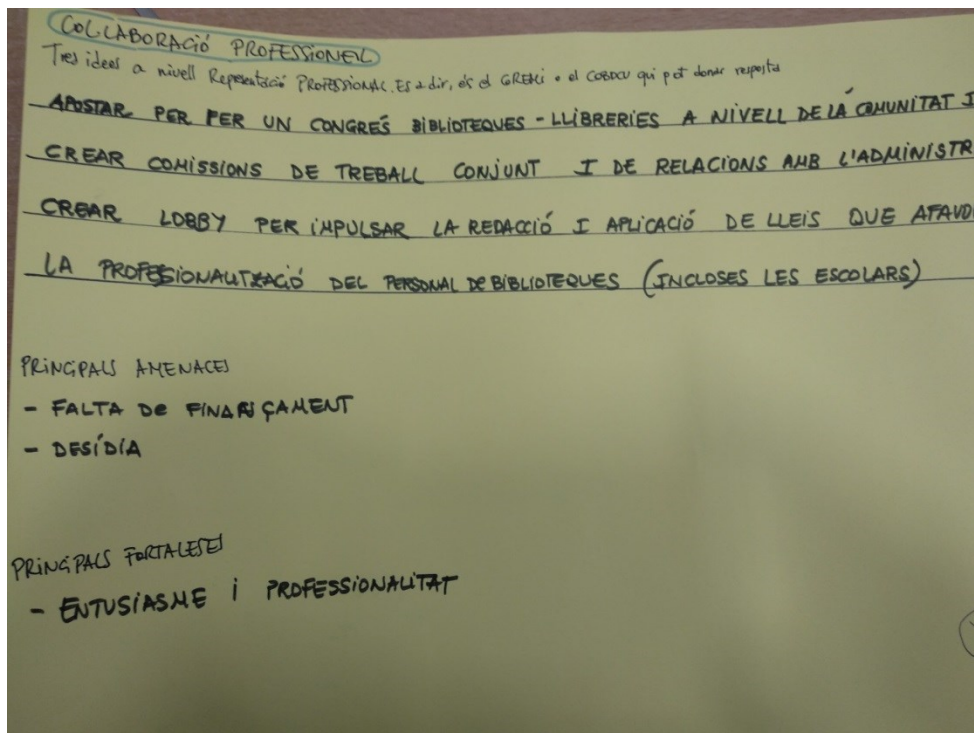 COL·LABORACIÓ PROFESSIONAL
Tres idees a nivell Representació PROFESSIONAL. Es a dir, és el GREMI o el COBDCV qui pot donar resposta
APOSTAR PER PER UN CONGRÉS BIBLIOTEQUES - LLIBRERIES A NIVELL DE LA COMUNITAT I
CREAR COMISSIONS DE TREBALL CONJUNT I DE RELACIONS AMB L'ADMINISTR
CREAR LOBBY PER IMPULSAR LA REDACCIÓ I APLICACIÓ DE LLEIS QUE AFAVO
LA PROFESSIONALITZACIÓ DEL PERSONAL DE BIBLIOTEQUES (INCLOSES LES ESCOLARS)
PRINCIPALS AMENACES
- FALTA DE FINANÇAMENT
- DESÍDIA
PRINCIPALS FORTALESES
- ENTUSIASME I PROFESSIONALITAT